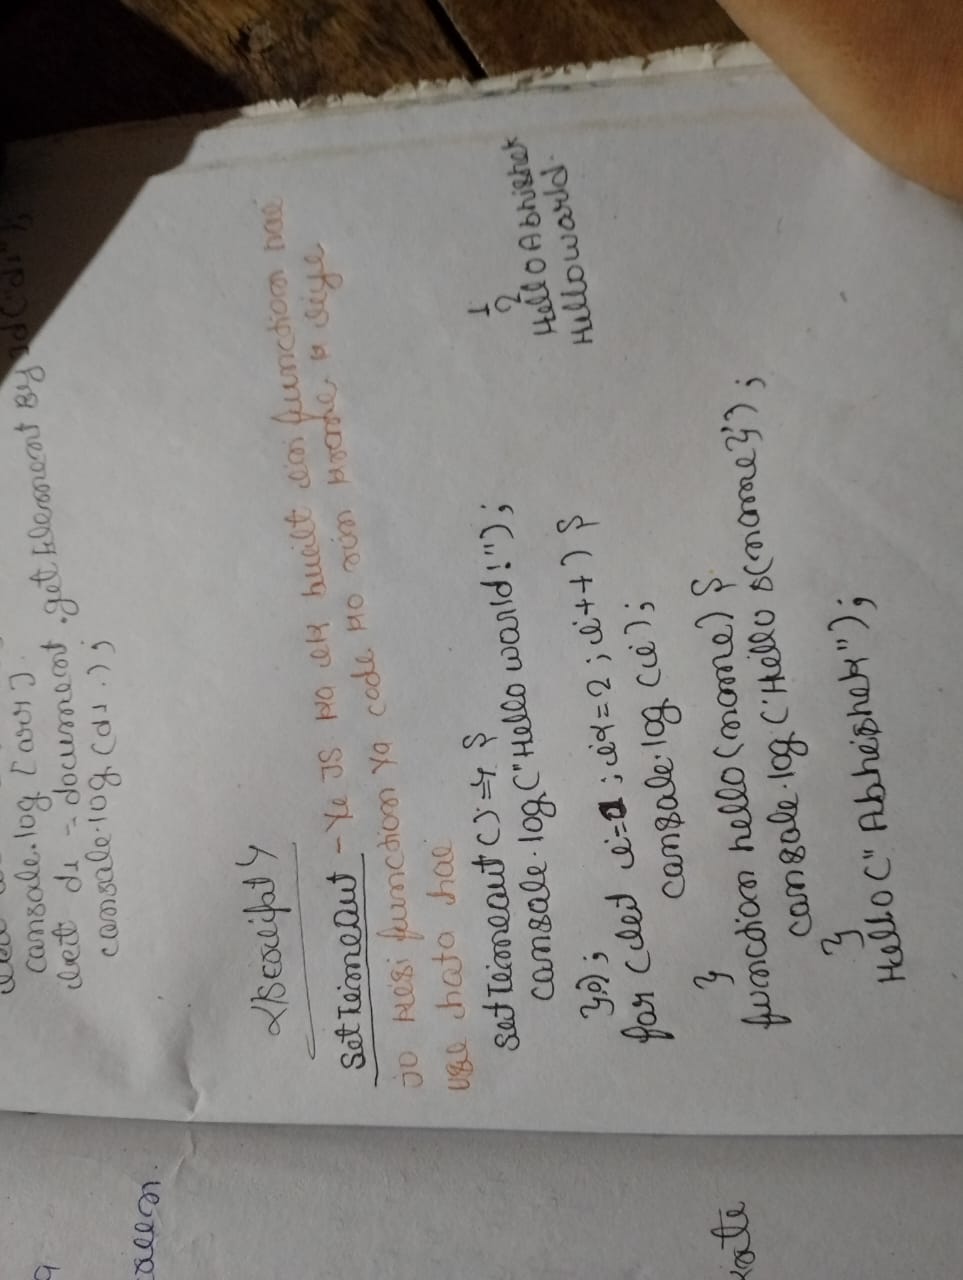 cansale.log [arr]
let d1 = document .getElement By Id("d1");
cansale.log (d1.);
</script>
Set Timeaut - Ye JS ka ek built in function hai
jo kesi function ya code ko run karne k liye
use hota hai
Set Timeaut(()=>{
cansale.log("Hello warld!");
});
far (let i=1; i<=2; i++) {
cansale.log (i);
}
function hello(name) {
cansale.log ('Hello $(name}');
}
Hello ("Abhishek");
1
2
Hello Abhishek
Hello warld.